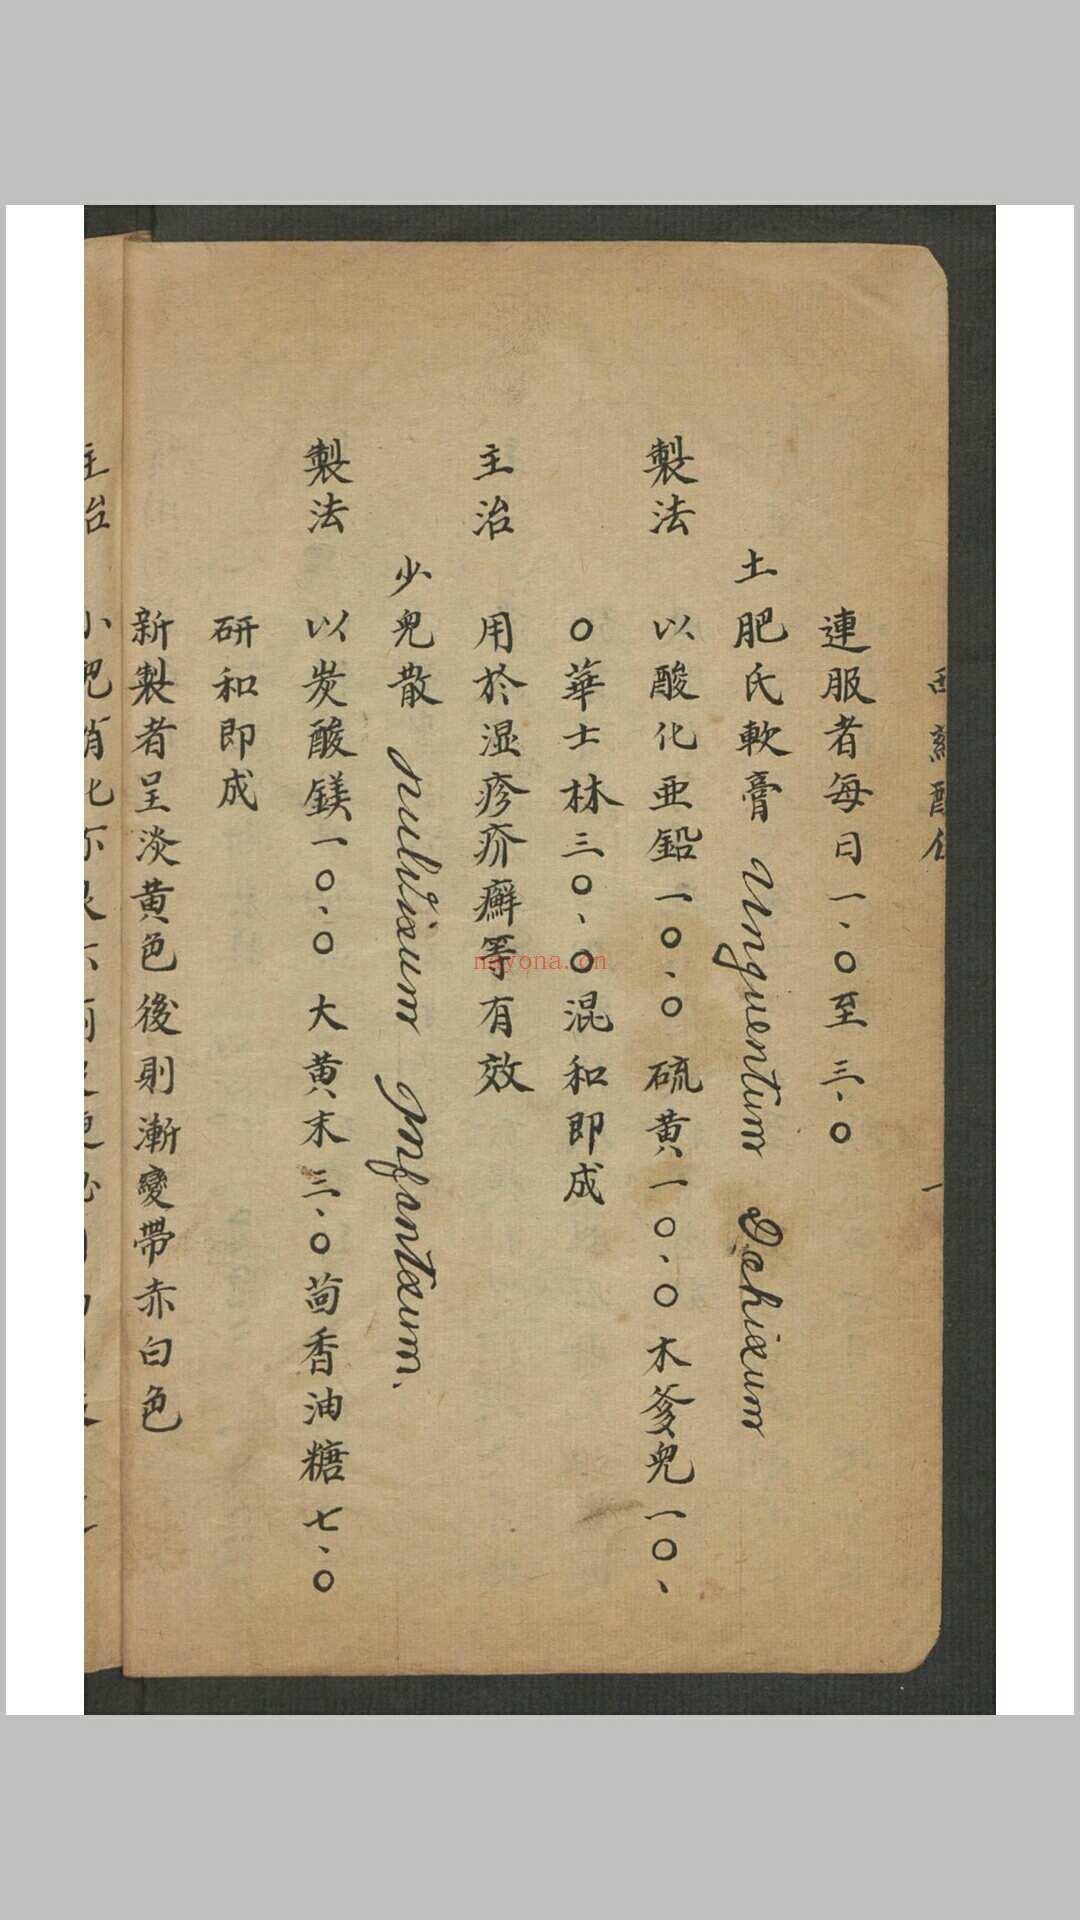 連服者每日一、〇至三、〇
土肥氏軟膏 Unguentum Dohixum
製法 以酸化亜鉛一〇、〇 硫黄一〇、〇木爹兒一〇、
〇華士林三〇、〇混和即成
主治 用於湿疹疥癬等有效
少兒散 Infantxum.
製法 以炭酸鎂一〇、〇 大黄末三、〇茴香油糖七、〇
研和即成
新製者呈淡黄色後則漸變帶赤白色
主治
nayona.cn